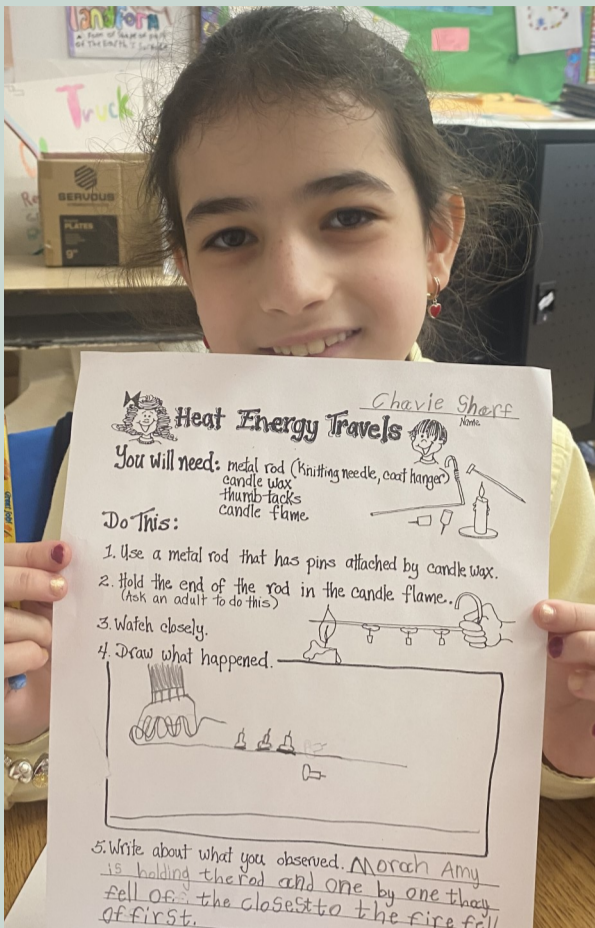 landform
Truck
SERVOUS
PLATES
9"
Chavie Sharf
Name
Heat Energy Travels
You will need: metal rod (Knitting needle, coat hanger)
candle wax
thumb tacks
candle flame
Do This:
1. Use a metal rod that has pins attached by candle wax.
2. Hold the end of the rod in the candle flame.
(Ask an adult to do this)
3. Watch closely.
4. Draw what happened.
5. Write about what you observed. Morah Amy
is holding the rod and one by one they
fell of. the closest to the fire fell
of first.